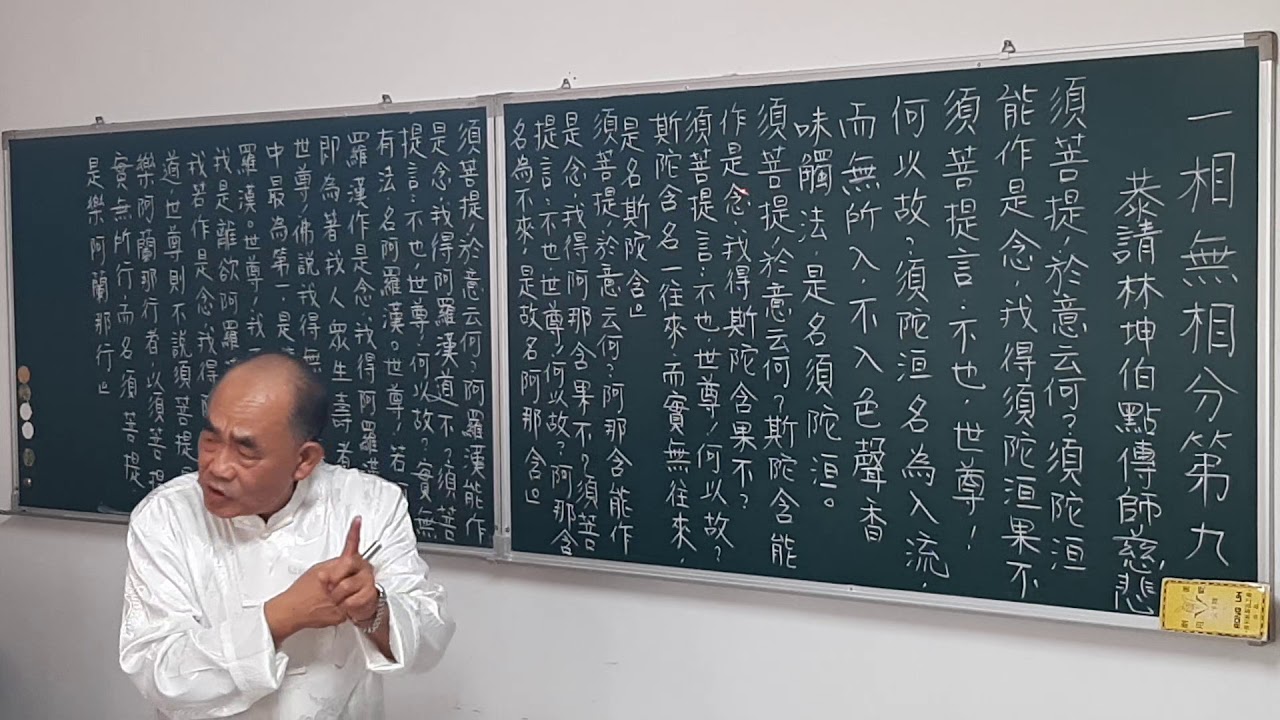 一相無相分第九
恭請林坤伯點傳師慈悲
須菩提，於意云何？須陀洹
能作是念，我得須陀洹果不
須菩提言：不也，世尊！
何以故？須陀洹名為入流，
而無所入，不入色聲香
味觸法，是名須陀洹。
須菩提，於意云何？斯陀含能
作是念，我得斯陀含果不？
須菩提言：不也，世尊！何以故？
斯陀含名一往來，而實無往來，
是名斯陀含。
須菩提，於意云何？阿那含能作
是念，我得阿那含果不？須菩
提言：不也，世尊！何以故？阿那含
名為不來，是故名阿那含。
須菩提，於意云何？阿羅漢能作
是念，我得阿羅漢道不？須菩
提言：不也，世尊！何以故？實無
有法，名阿羅漢。世尊！若
羅漢作是念，我得阿羅漢
即為著我人眾生壽者
世尊！佛說我得無
中最為第一，是
羅漢。世尊！我
我是離欲阿羅
我若作是念，我得
道，世尊則不說須菩提
樂阿蘭那行者，以須菩提
實無所行，而名須菩提，
是樂阿蘭那行。
RONG LIH